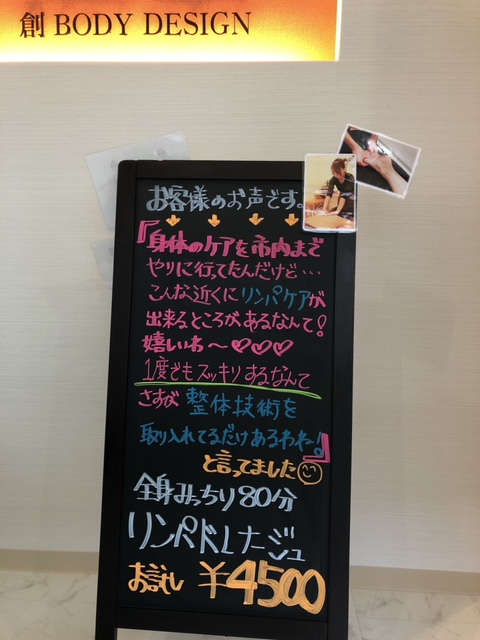 創 BODY DESIGN
お客様のお声です。
↓ ↓ ↓ ↓
『身体のケアを市内まで
やりに行ってたんだけど…
こんな近くにリンパケアが
出来るところがあるなんて!
嬉しいわ〜♡♡♡
1度でもスッキリするなんて
さすが 整体技術を
取り入れてるだけあるわね!』
と言ってました☺
全身みっちり80分
リンパドレナージュ
お試し ¥4500